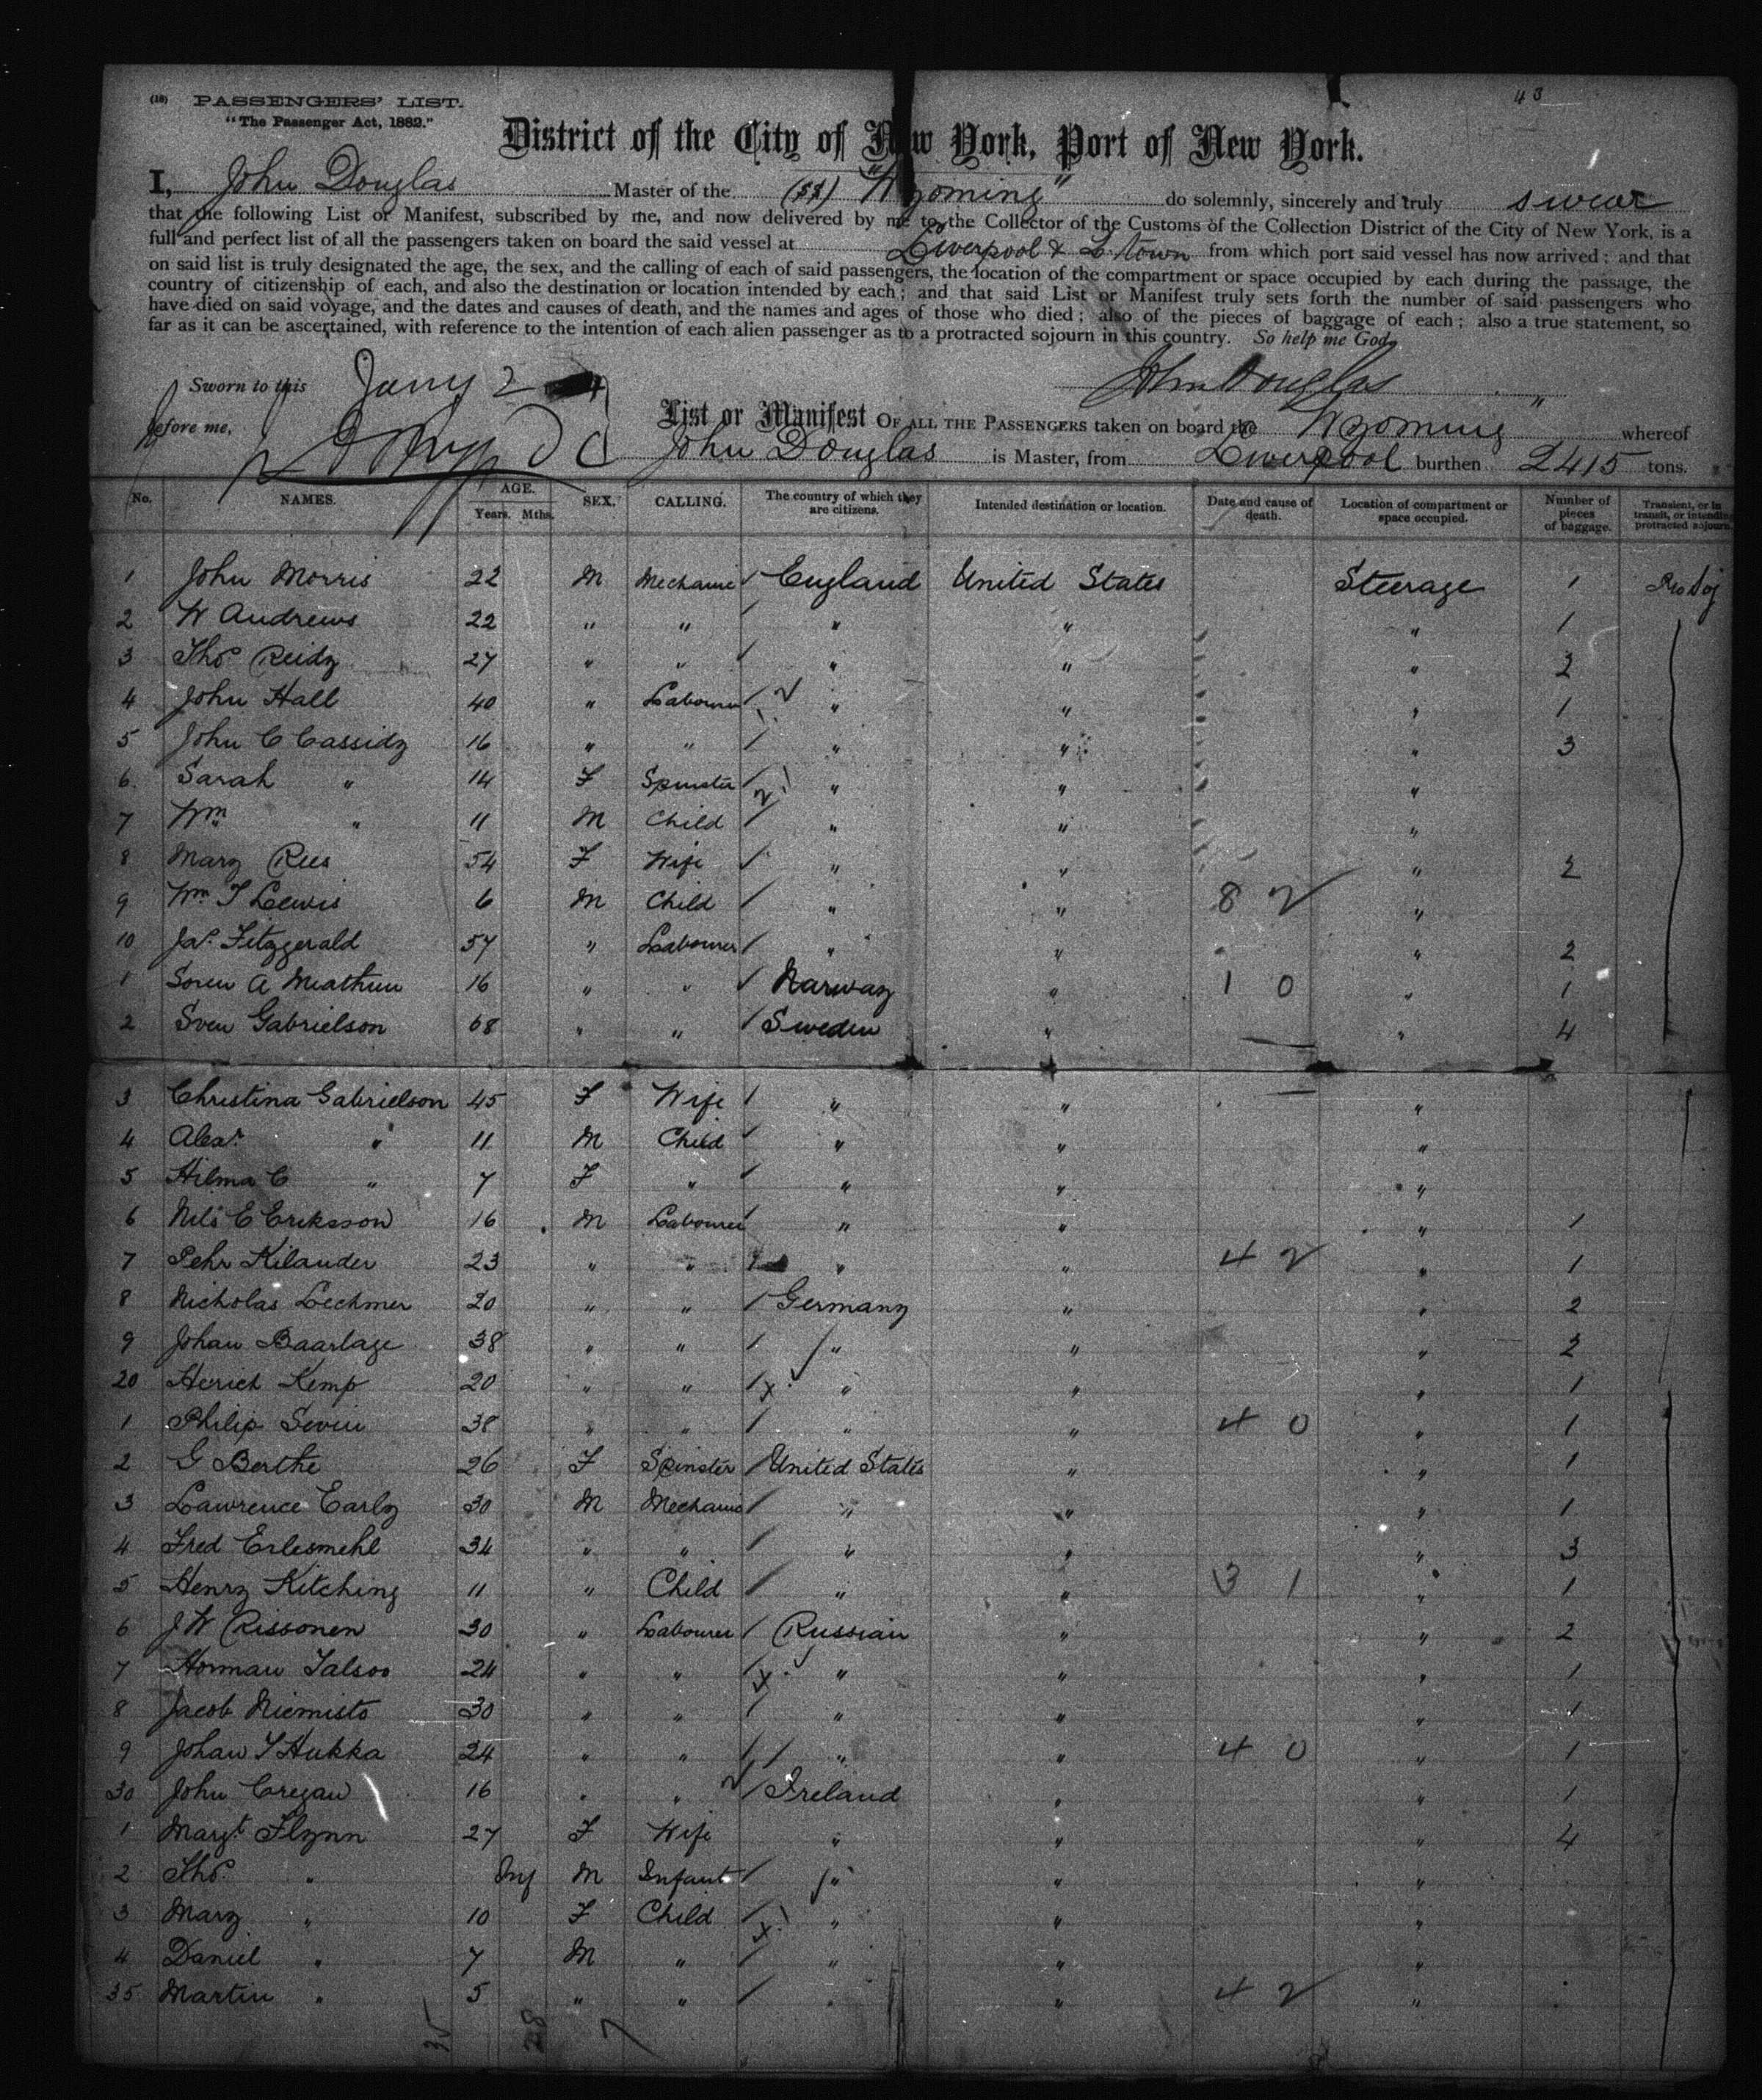 43
(18) PASSENGERS' LIST.
"The Passenger Act, 1882."
District of the City of New York, Port of New York.
I, John Douglas Master of the (SS) "Wyoming" do solemnly, sincerely and truly swear
that the following List or Manifest, subscribed by me, and now delivered by me to the Collector of the Customs of the Collection District of the City of New York, is a
full and perfect list of all the passengers taken on board the said vessel at Liverpool & Q. town from which port said vessel has now arrived; and that
on said list is truly designated the age, the sex, and the calling of each of said passengers, the location of the compartment or space occupied by each during the passage, the
country of citizenship of each, and also the destination or location intended by each; and that said List or Manifest truly sets forth the number of said passengers who
have died on said voyage, and the dates and causes of death, and the names and ages of those who died; also of the pieces of baggage of each; also a true statement, so
far as it can be ascertained, with reference to the intention of each alien passenger as to a protracted sojourn in this country. So help me God,
Sworn to this Jany 2 John Douglas
before me,
List or Manifest OF ALL THE PASSENGERS taken on board the Wyoming " whereof
John Douglas is Master, from Liverpool burthen 2415 tons.
No. NAMES. AGE. Years. Mths. SEX. CALLING. The country of which they are citizens. Intended destination or location. Date and cause of death. Location of compartment or space occupied. Number of pieces of baggage. Transient, or in transit, or intending protracted sojourn.
1 John Morris 22 M Mechanic / England United States Steerage 1 Pro Soj
2 W Andrews 22 " " / " " " 1
3 Thos Reidy 27 " " / " " " 2
4 John Hall 40 " Labourer / " " " 1
5 John C Cassidy 16 " " / " " " 3
6 Sarah " 14 F Spinster / " " "
7 Wm " 11 M Child / " " "
8 Mary Rees 54 F Wife / " " " 2
9 Wm T Lewis 6 M Child / " " 8 2 "
10 Jas Fitzgerald 57 " Labourer / " " " 2
1 Soren A Meathun 16 " " / Norway " 1 0 " 1
2 Sven Gabrielson 68 " " / Sweden " " 4
3 Christina Gabrielson 45 F Wife / " " "
4 Alexr " 11 M Child / " " "
5 Hilma C " 7 F " / " " "
6 Nils E Eriksson 16 M Labourer / " " " 1
7 Pehr Kilander 23 " " " " 4 2 " 1
8 Nicholas Lechmer 20 " " / Germany " " 2
9 Johan Baarlage 38 " " / " " " 2
20 Herich Kemp 20 " " / x " " " 1
1 Philip Sevin 38 " " / " " 4 0 " 1
2 G Berthe 26 F Spinster / United States " " 1
3 Lawrence Early 30 M Mechanic / " " " 1
4 Fred Erlesmehl 34 " " / " " " 3
5 Henry Kitching 11 " Child / " " 3 1 " 1
6 J W Rissonen 30 " Labourer / Russian " " 2
7 Herman Talsoo 24 " " / x " " " 1
8 Jacob Niemisto 30 " " / " " " 1
9 Johan Y Hukka 24 " " / " " 4 0 " 1
30 John Cregan 16 " " / Ireland " " 1
1 Margt Flynn 27 F Wife " " " 4
2 Thos " Inf M Infant / " " "
3 Mary " 10 F Child / x " " "
4 Daniel " 7 M " / " " "
35 Martin " 5 " " / " " 4 2 "
35 28 7